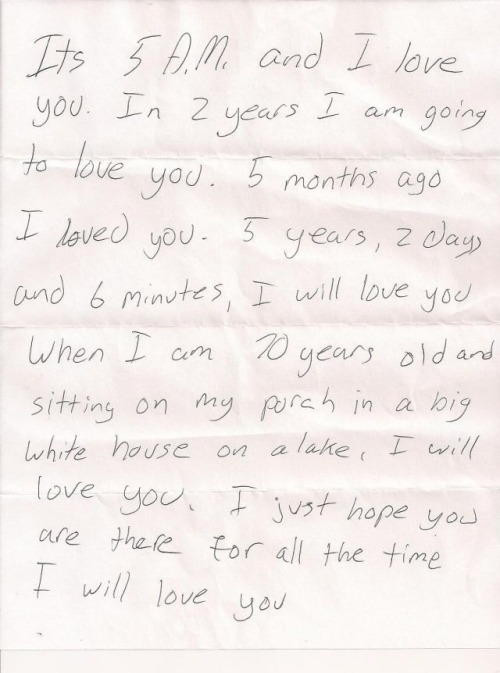 Its 5 A.M. and I love
you. In 2 years I am going
to love you. 5 months ago
I loved you. 5 years, 2 days
and 6 minutes, I will love you
When I am 70 years old and
sitting on my porch in a big
white house on a lake, I will
love you. I just hope you
are there for all the time
I will love you